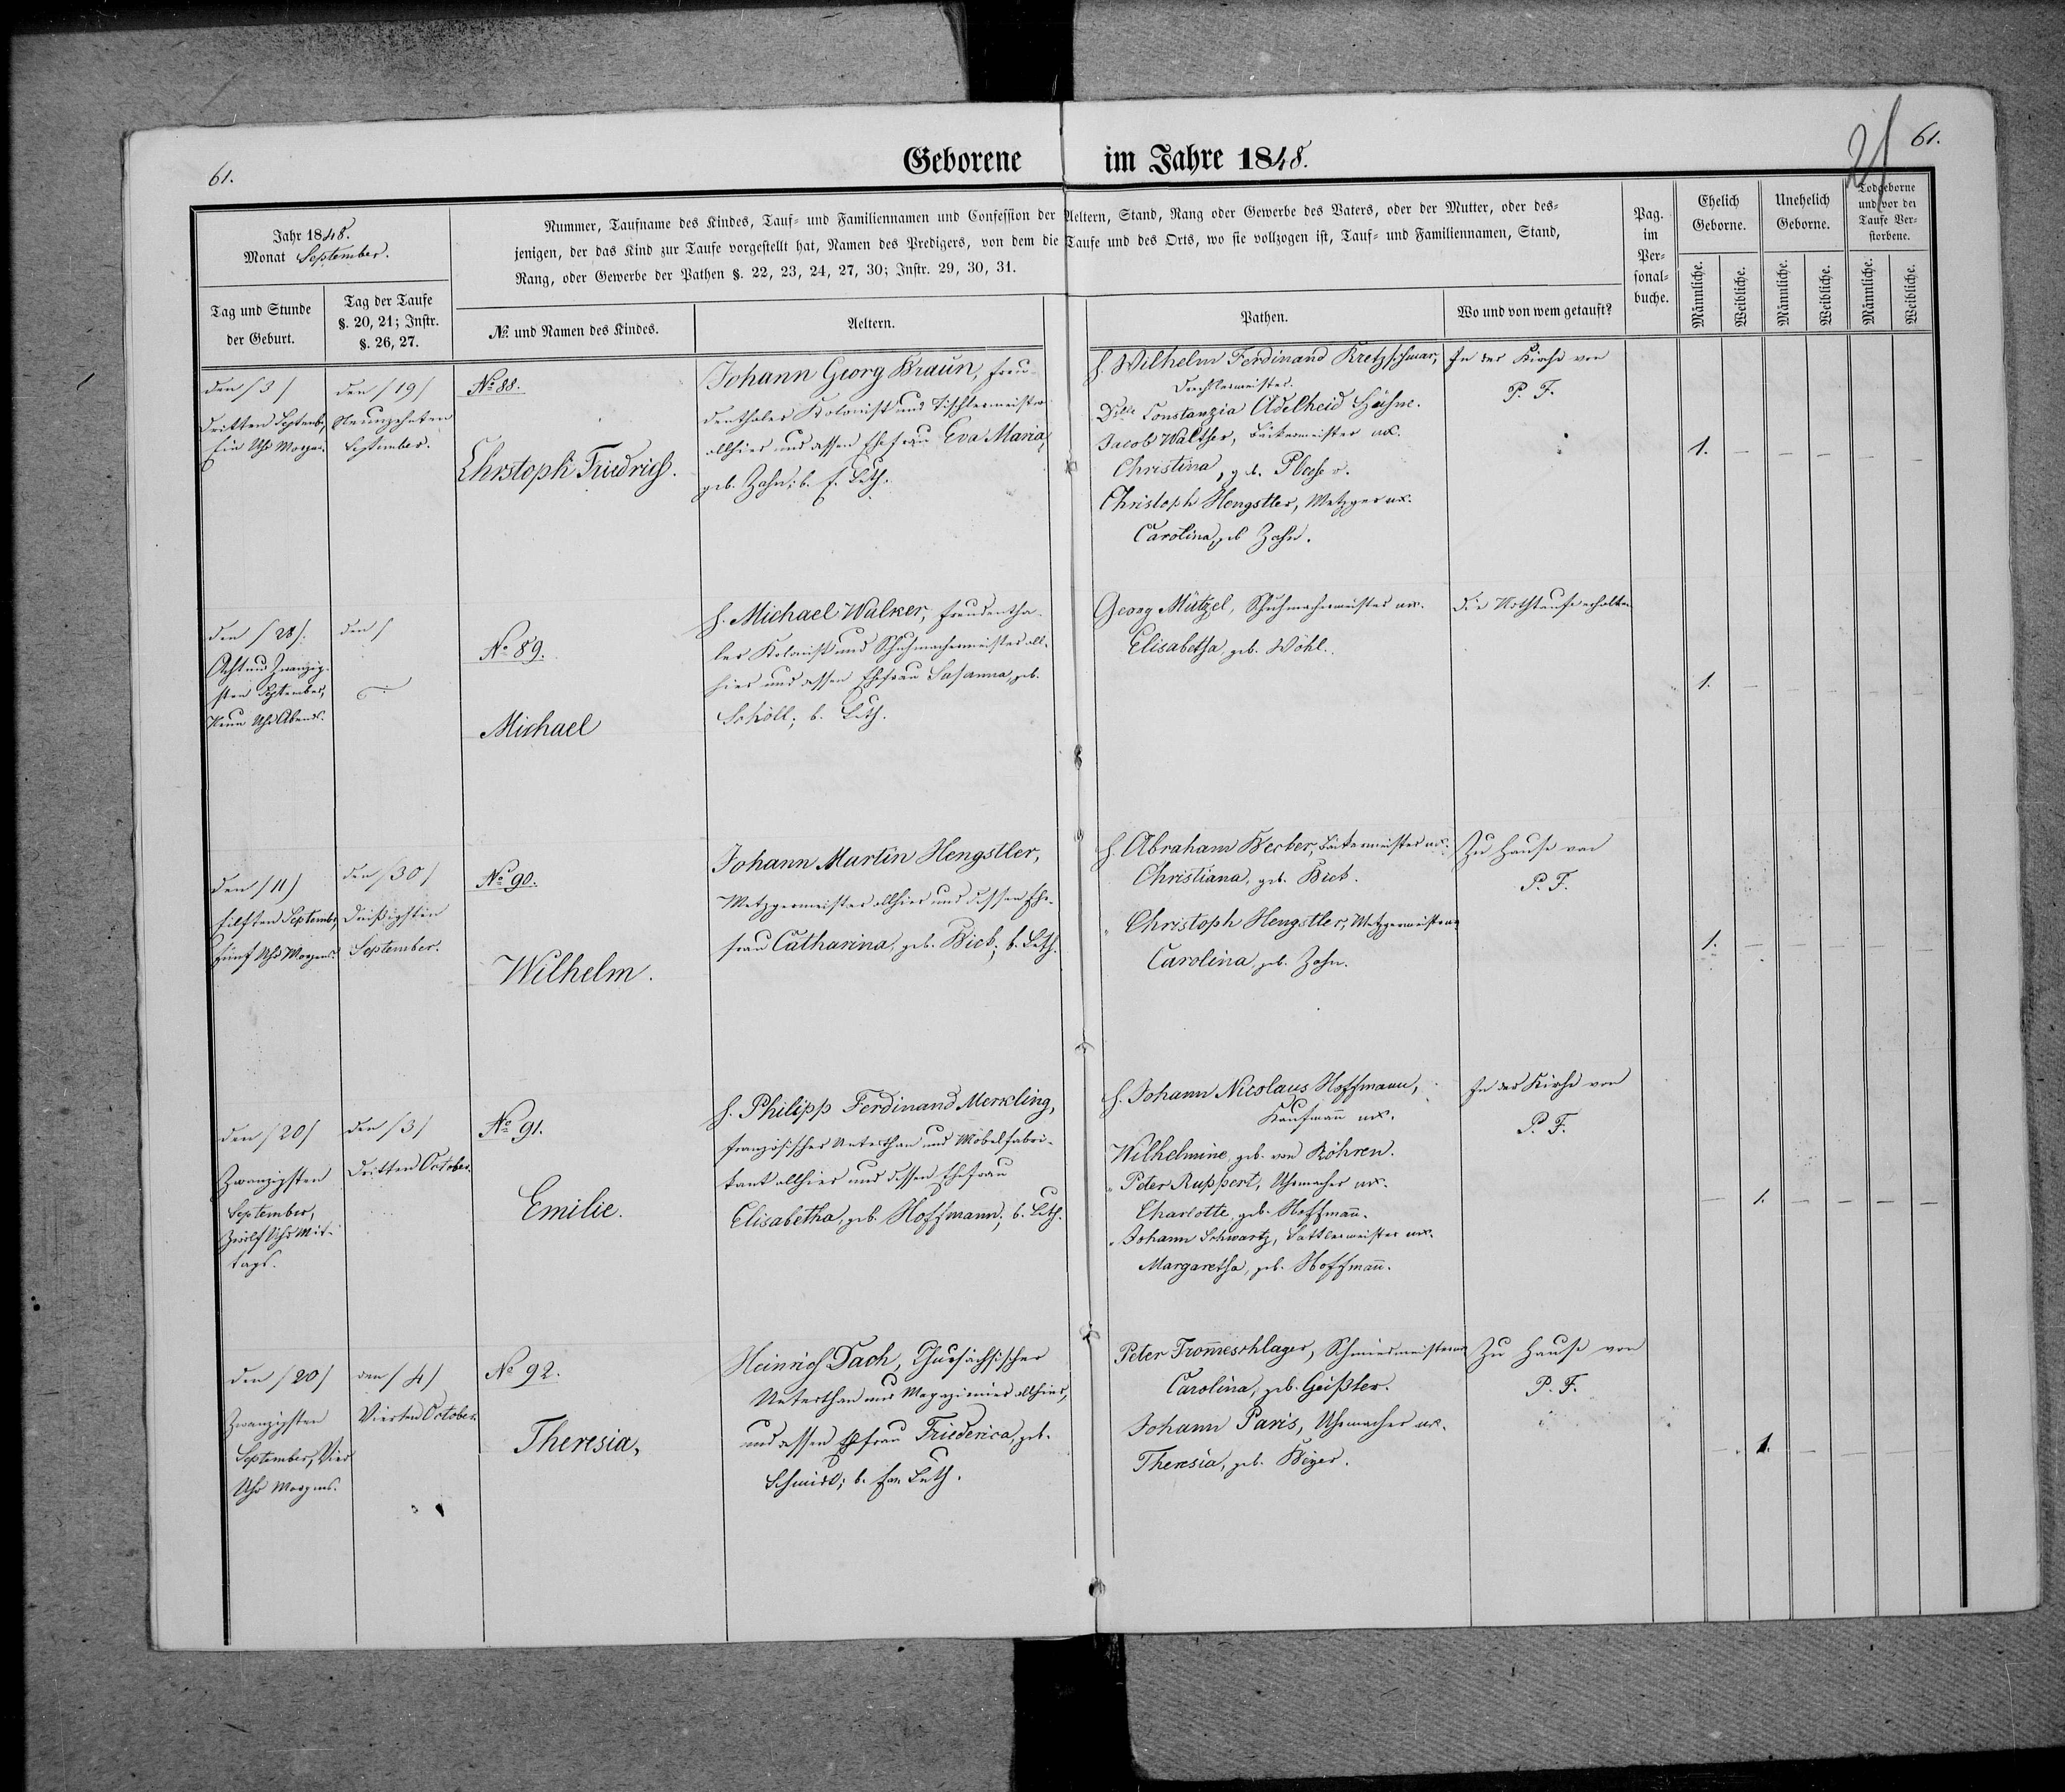 61.
Geborene im Jahre 1848.
21
61.
Jahr 1848.
Monat September.
Nummer, Taufname des Kindes, Tauf- und Familiennamen und Confession der Aeltern, Stand, Rang oder Gewerbe des Vaters, oder der Mutter, oder des-
jenigen, der das Kind zur Taufe vorgestellt hat, Namen des Predigers, von dem die Taufe und des Orts, wo sie vollzogen ist, Tauf- und Familiennamen, Stand,
Rang, oder Gewerbe der Pathen §. 22, 23, 24, 27, 30; Instr. 29, 30, 31.
Pag.
im
Per-
sonal-
buche.
Ehelich
Geborne.
Unehelich
Geborne.
Todgeborne
und vor der
Taufe Ver-
storbene.
Tag und Stunde
der Geburt.
Tag der Taufe
§. 20, 21; Instr.
§. 26, 27.
№ und Namen des Kindes.
Aeltern.
Pathen.
Wo und von wem getauft?
Männliche.
Weibliche.
Männliche.
Weibliche.
Männliche.
Weibliche.
den /3/
dritten Septembr,
Ein Uhr Morgens.
den /19/
Neunzehnten
September.
№ 88.
Christoph Friedrich.
Johann Georg Braun, freu-
denthaler Kolonist und Tischlermeister
allhier und dessen Ehefrau Eva Maria,
geb. Zahn; b. Luth.
H. Wilhelm Ferdinand Kretzschmar,
Drechslermeister.
Dlle Constanzia Adelheid Höhne.
Jacob Walther, Bäckermeister ux.
Christina, geb.
Christoph Hengstler, Metzger ux.
Carolina, geb Zahn.
In der Kirche von
P. F.
1. — — — — —
den /28/.
Acht und Zwanzig-
sten September,
Neun Uhr Abends.
den /
№ 89.
Michael
H. Michael Walker, freudentha-
ler Kolonist und Schuhmachermeister all-
hier und dessen Ehefrau Susanna, geb.
Schöll; b. Luth.
Georg Mützel, Schuhmachermeister ux.
Elisabetha, geb. Wöhl.
Die Nothtaufe erhalten
1. — — — — —
den /11/
Eilften September,
Fünf Uhr Morgens.
den /30/
Dreißigsten
September.
№ 90.
Wilhelm.
Johann Martin Hengstler,
Metzgermeister allhier und dessen Ehe-
frau Catharina, geb. Bieb; b. Luth.
H. Abraham Berber, Bäckermeister ux.
Christiana, geb. Bieb.
" Christoph Hengstler, Metzgermeister ux
Carolina, geb. Zahn.
Zu Hause von
P. F.
1. — — — — —
den /20/
Zwanzigsten
September,
Zwölf Uhr Mit-
tags.
den /3/
Dritten October.
№ 91.
Emilie.
H. Philipp Ferdinand Merkling,
französischer Unterthan und Möbelfabri-
kant allhier und dessen Ehefrau
Elisabetha, geb. Hoffmann; b. Luth.
H. Johann Nicolaus Hoffmann,
Kaufmann ux.
Wilhelmine, geb. von Röhren.
" Peter Ruppert, Uhrmacher ux.
Charlotte, geb. Hoffmañ.
" Johann Schwartz, Sattlermeister ux.
Margaretha, geb. Hoffmañ.
In der Kirche von
P. F.
— 1. — — — —
den /20/
Zwanzigsten
September, Vier
Uhr Morgens.
den /4/
Vierten October.
№ 92.
Theresia,
Heinrich Dach, Chursächsischer
Unterthan und Magazinier allhier,
und dessen Ehefrau Friederica, geb.
Schmidt; b. Ev. Luth.
Peter Trom̃eschlager, Schmiedmeister ux
Carolina, geb. Geißler.
Johann Paris, Uhrmacher ux.
Theresia, geb. Beyer.
Zu Hause von
P. F.
— 1. — — — —